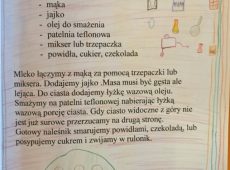 - mąka
- jajko
- olej do smażenia
- patelnia teflonowa
- mikser lub trzepaczka
- powidła, cukier, czekolada
Mleko łączymy z mąką za pomocą trzepaczki lub
miksera. Dodajemy jajko .Masa musi być gęsta ale
lejąca. Do ciasta dodajemy łyżkę wazową oleju.
Smażymy na patelni teflonowej nabierając łyżką
wazową porcję ciasta. Gdy ciasto widoczne z góry nie
jest już surowe przerzucamy na drugą stronę.
Gotowy naleśnik smarujemy powidłami, czekoladą, lub
posypujemy cukrem i zwijamy w rulonik.